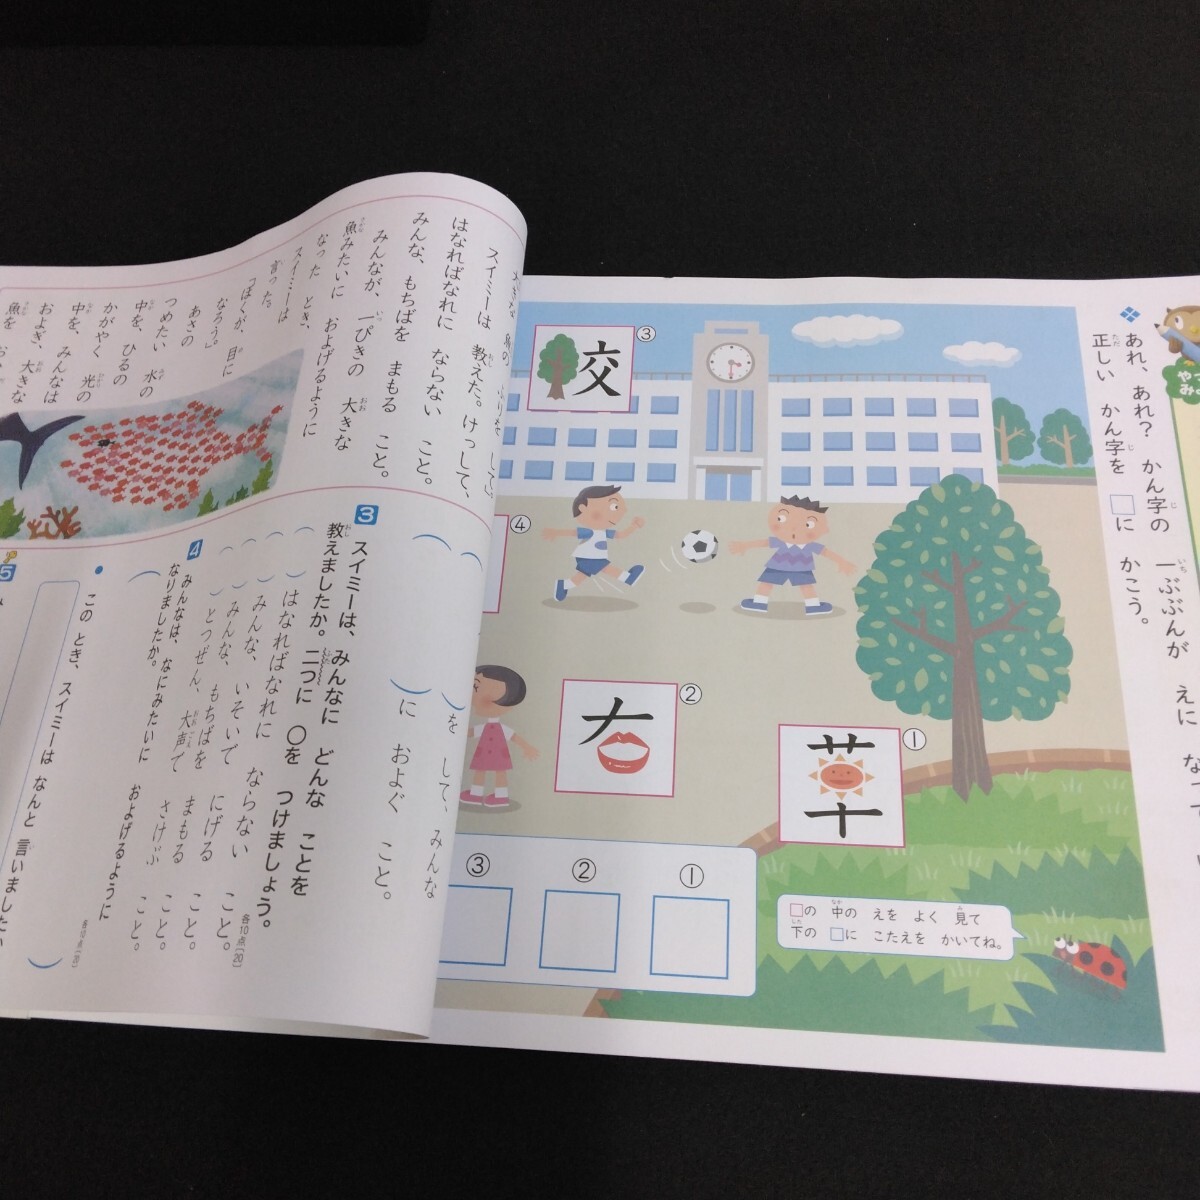 あれ、あれ? かん字の 一ぶぶんが えに
正しい かん字を □に かこう。
③
交
④
②
①
③
②
①
□の 中の えを よく 見て
下の □に こたえを かいてね。
スイミーは 教えた。けっして、
はなればなれに ならない こと。
みんな、もちばを まもる こと。
みんなが、一ぴきの 大きな
魚みたいに およげるように
なった とき、
スイミーは
言った。
「ぼくが、目に
なろう。」
あさの
つめたい 水の
中を、ひるの
かがやく 光の
中を、みんなは
およぎ、大きな
魚を
を して、みんな
に およぐ こと。
3 スイミーは、みんなに どんな ことを
教えましたか。二つに ○を つけましょう。
各10点[20]
はなればなれに ならない こと。
みんな、いそいで にげる こと。
みんな、もちばを まもる こと。
とつぜん、大声で さけぶ こと。
4 みんなは、なにみたいに およげるように
なりましたか。
各10点[20]
5
● この とき、スイミーは なんと 言いましたか